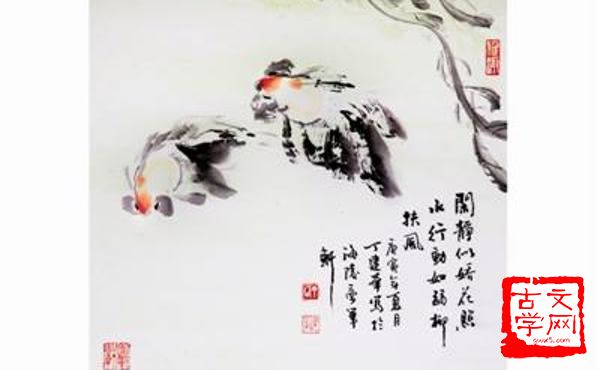 閑靜似嬌花照
水行動如弱柳
扶風
庚寅年夏月
丁建華寫於
海陵
軒
古文
学网